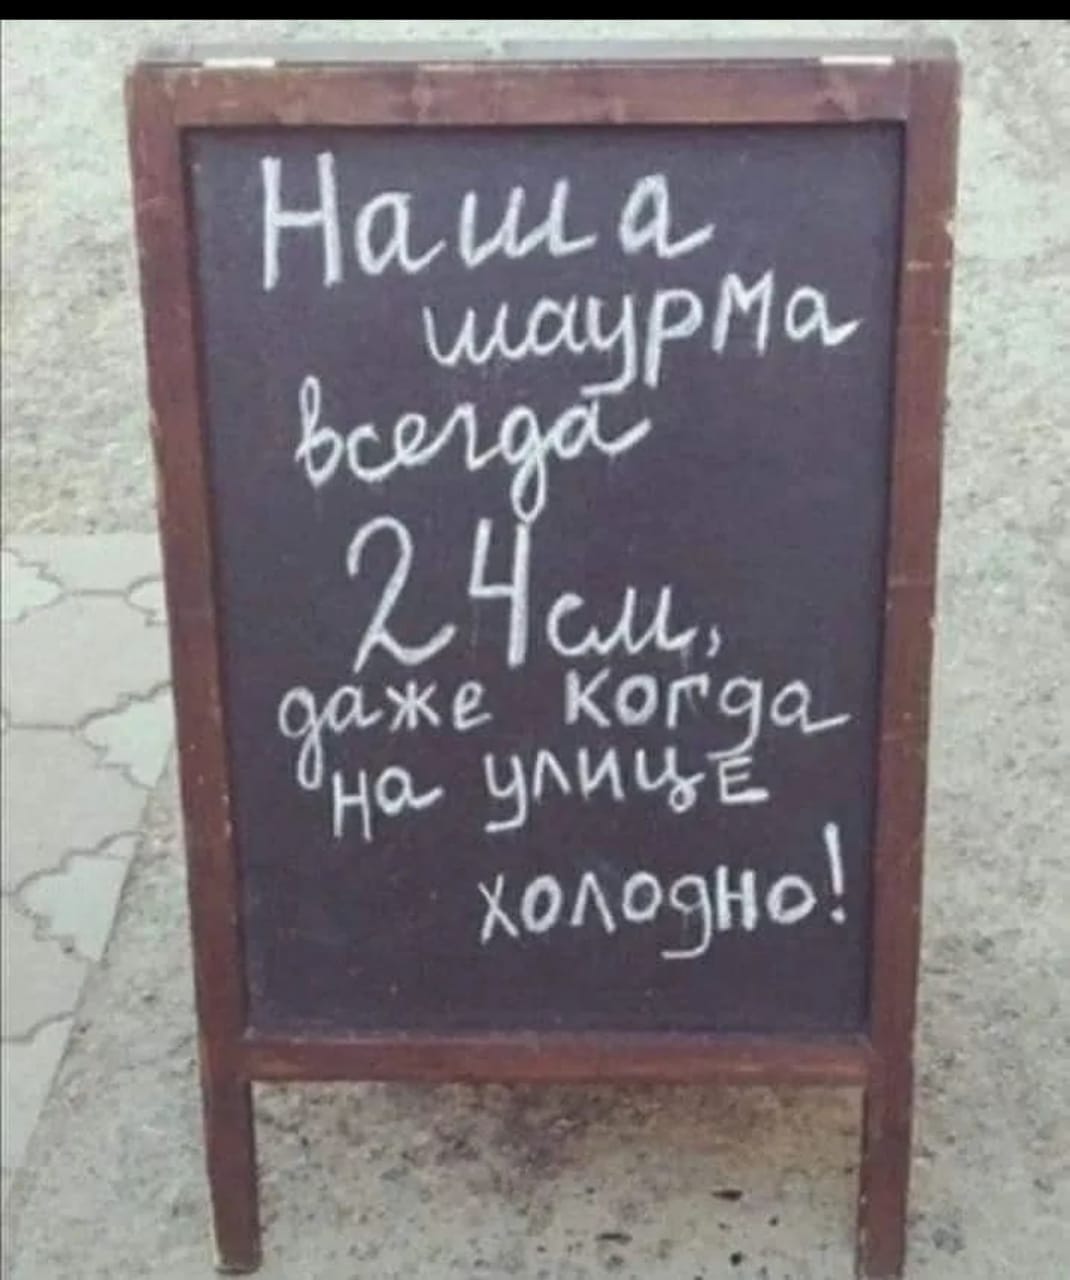 Наша
шаурма
всегда
24 см,
даже когда
на улице
холодно!